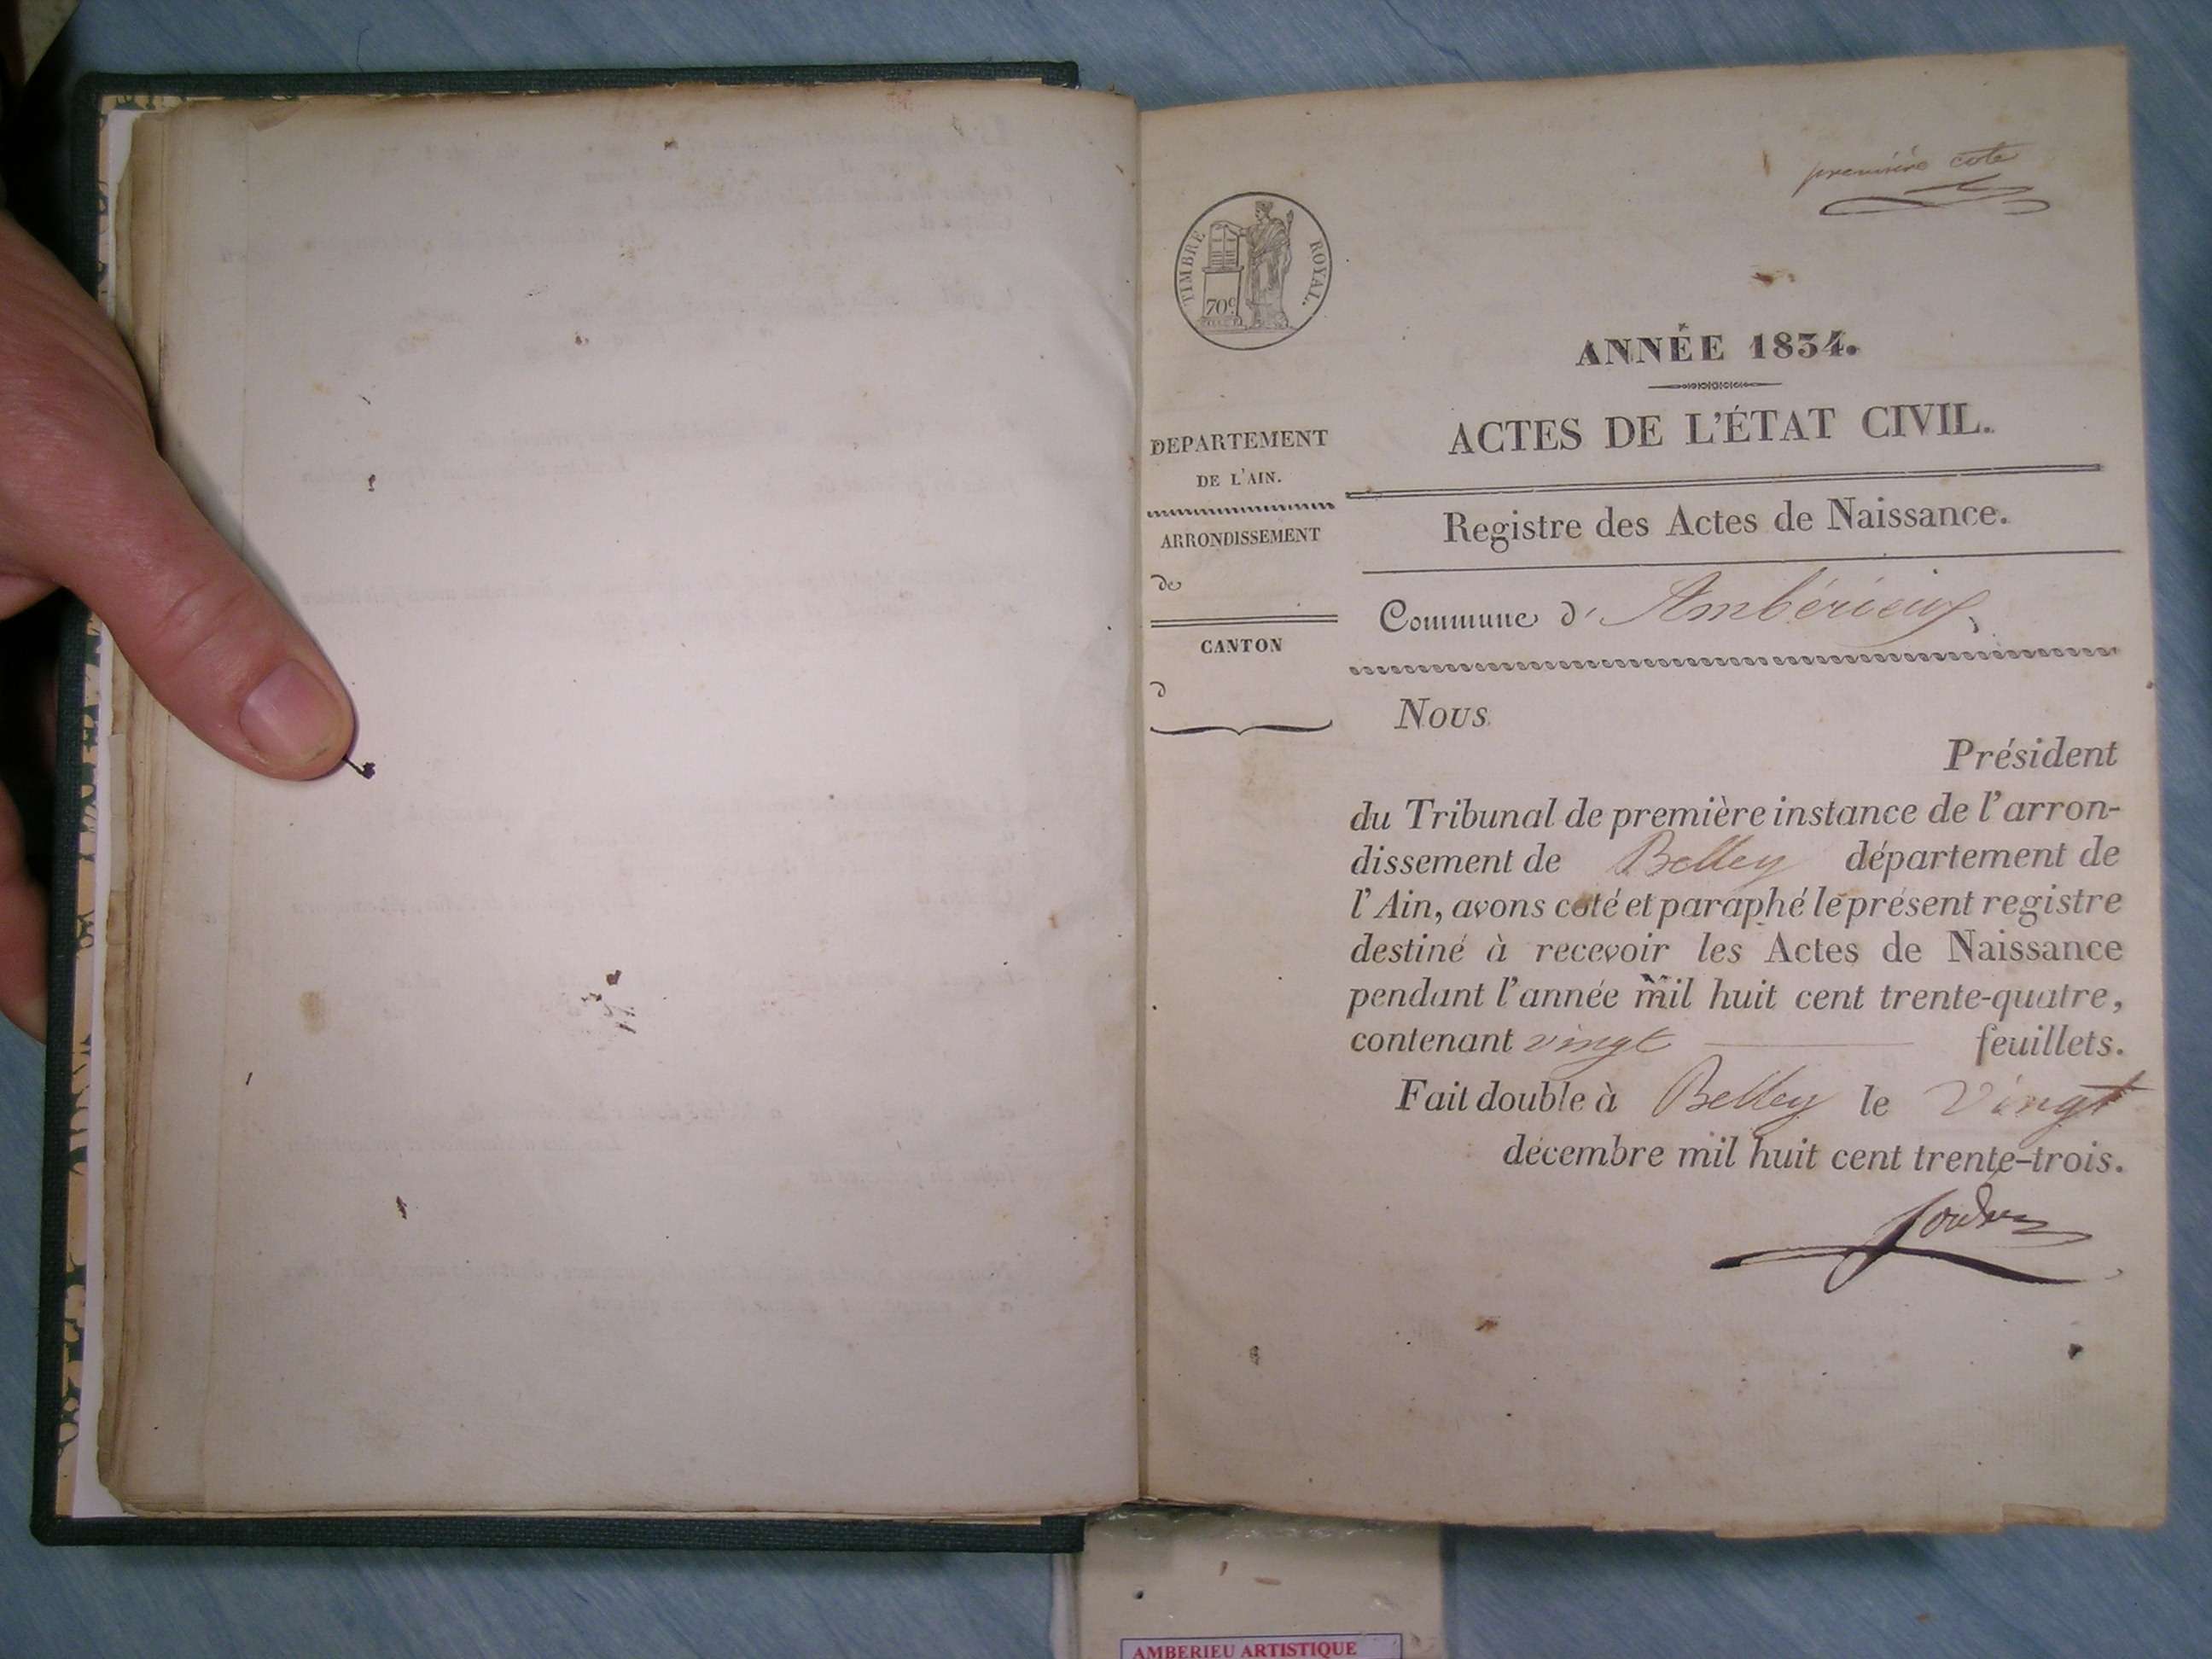 première cote
TIMBRE ROYAL.
70c
ANNÉE 1834.
ACTES DE L'ÉTAT CIVIL.
DEPARTEMENT
DE L'AIN.
ARRONDISSEMENT
de
CANTON
d
Registre des Actes de Naissance.
Commune d' Ambérieux
Nous
Président
du Tribunal de première instance de l'arron-
dissement de Belley département de
l'Ain, avons coté et paraphé le présent registre
destiné à recevoir les Actes de Naissance
pendant l'année mil huit cent trente-quatre,
contenant vingt feuillets.
Fait double à Belley le Vingt
décembre mil huit cent trente-trois.
AMBERIEU ARTISTIQUE